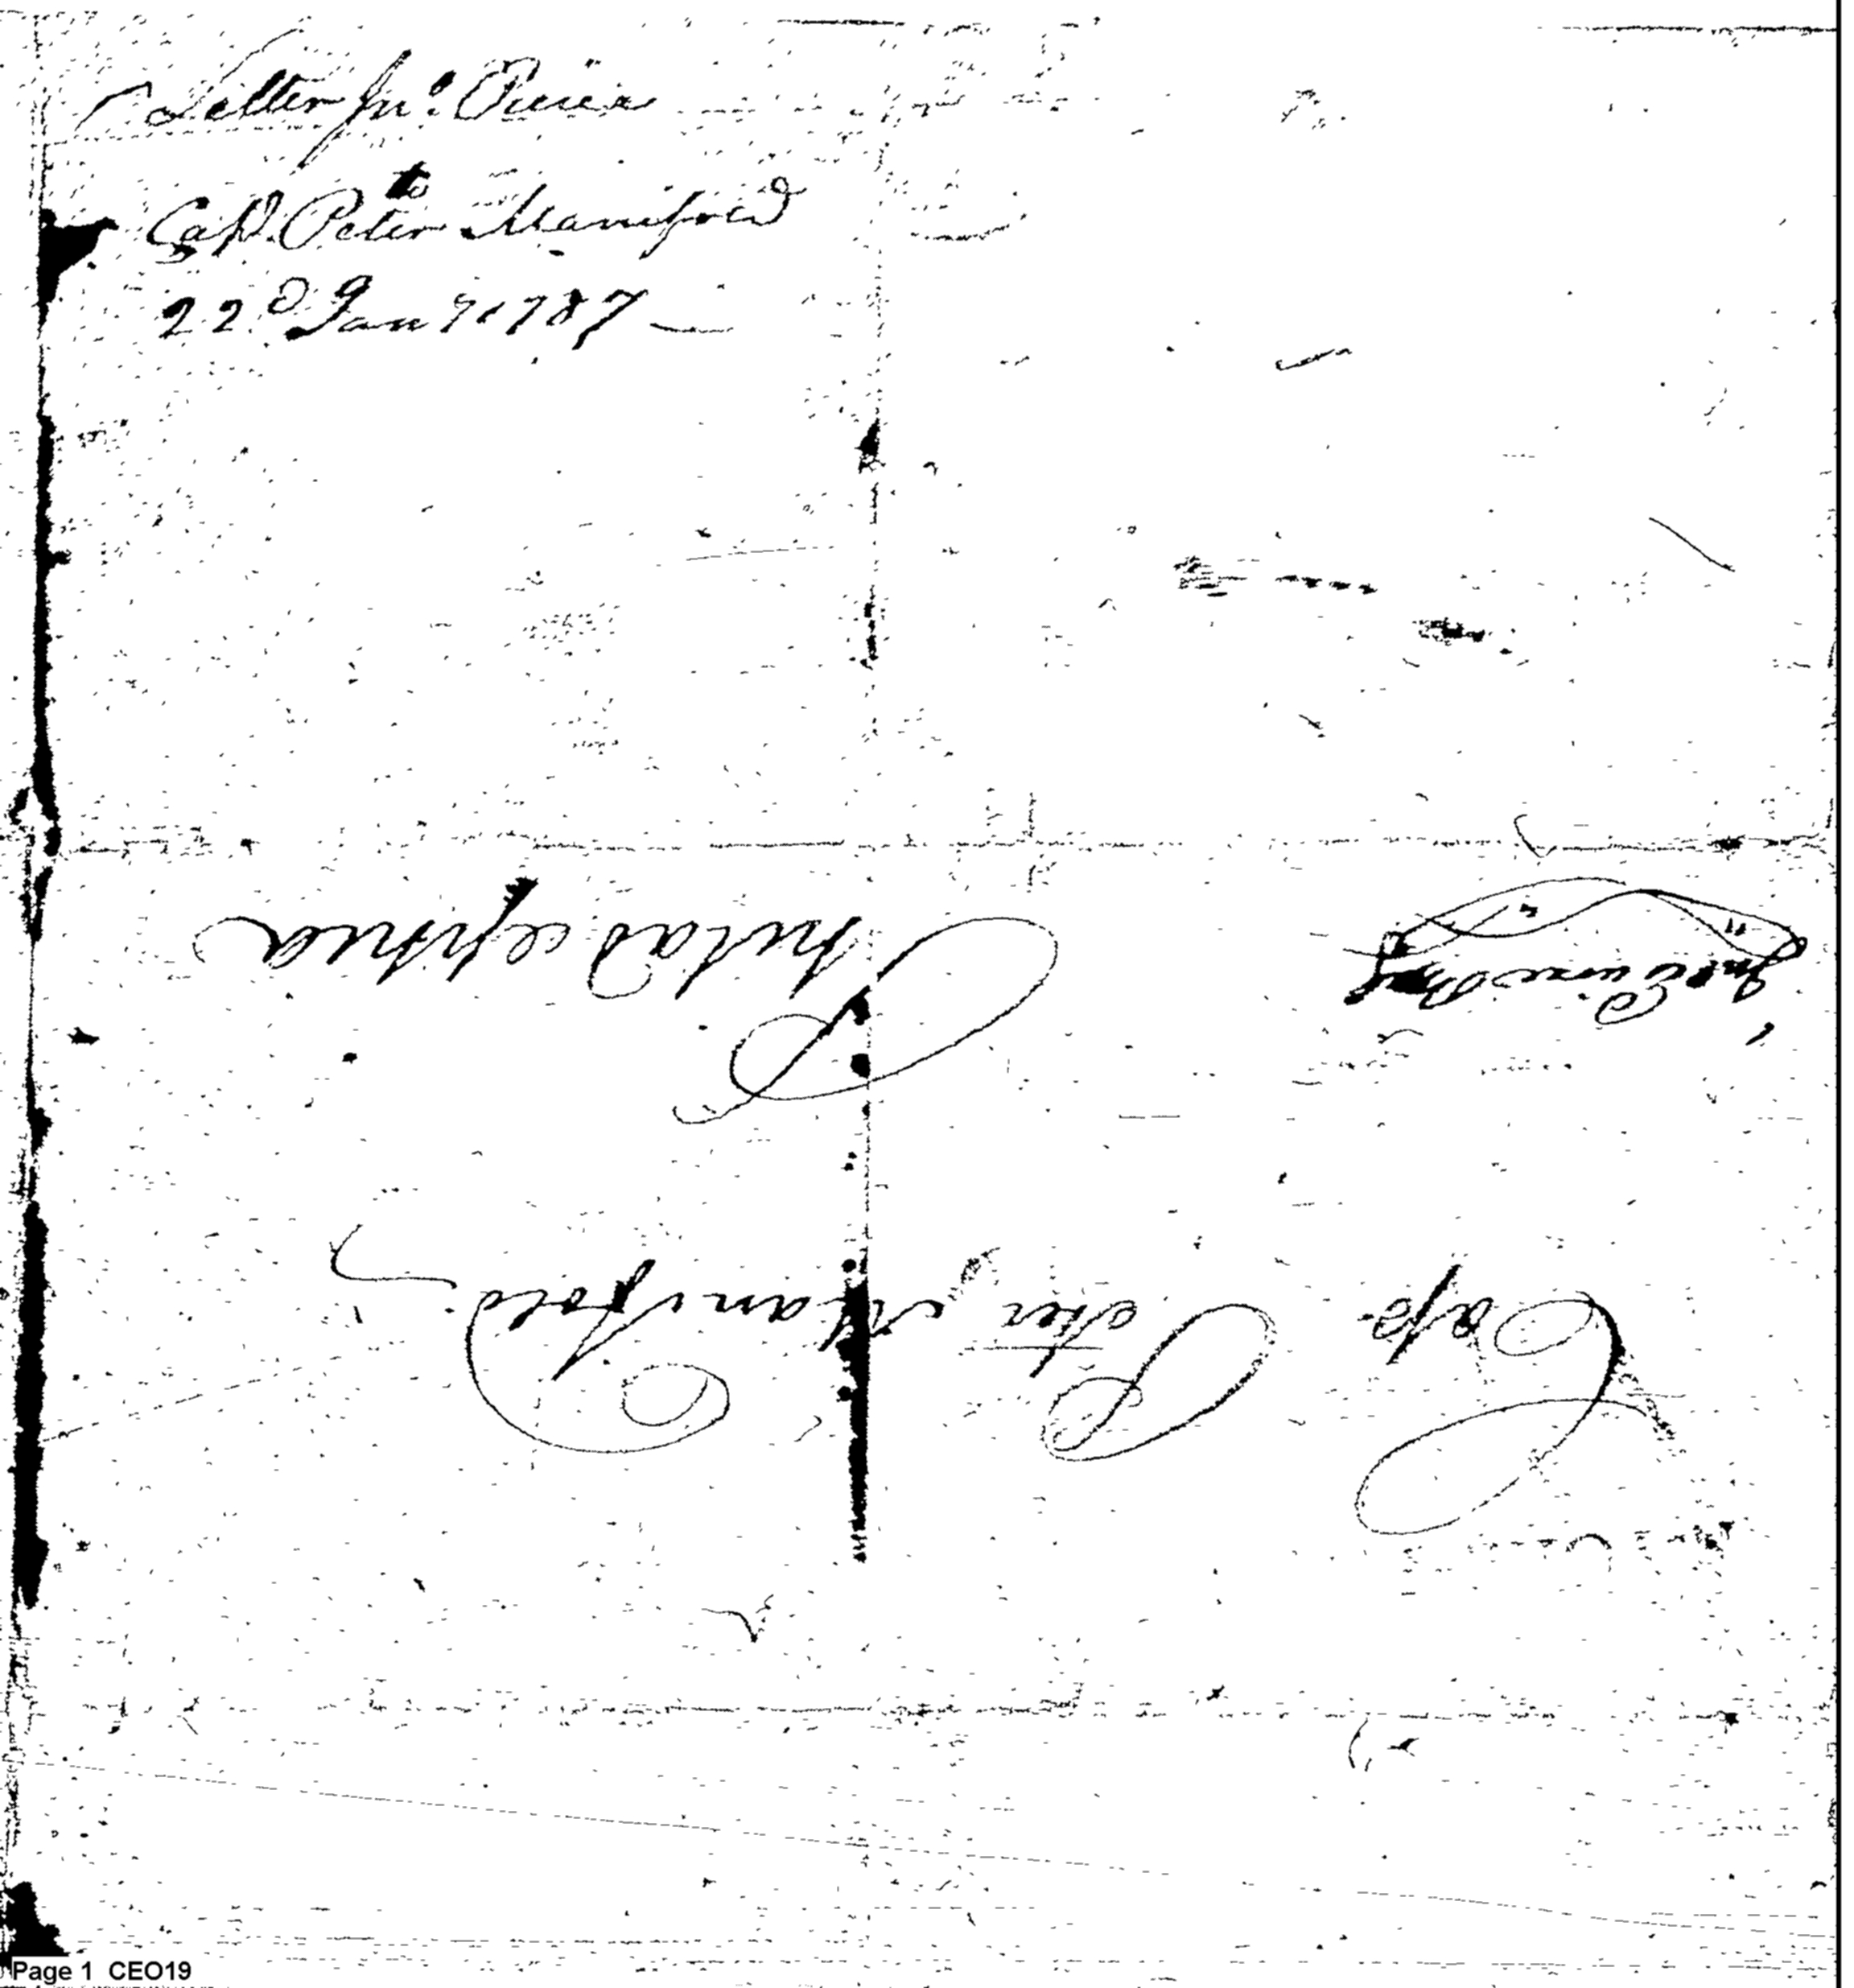 Letter Jn.º Pierce
to
Capt. Peter Manifold
22.d Jan y 1787
Capt. Peter Manifold
Philadelphia
Page 1 CEO19